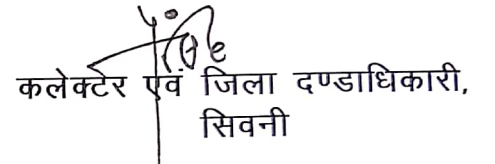 कलेक्टर एवं जिला दण्डाधिकारी,
सिवनी